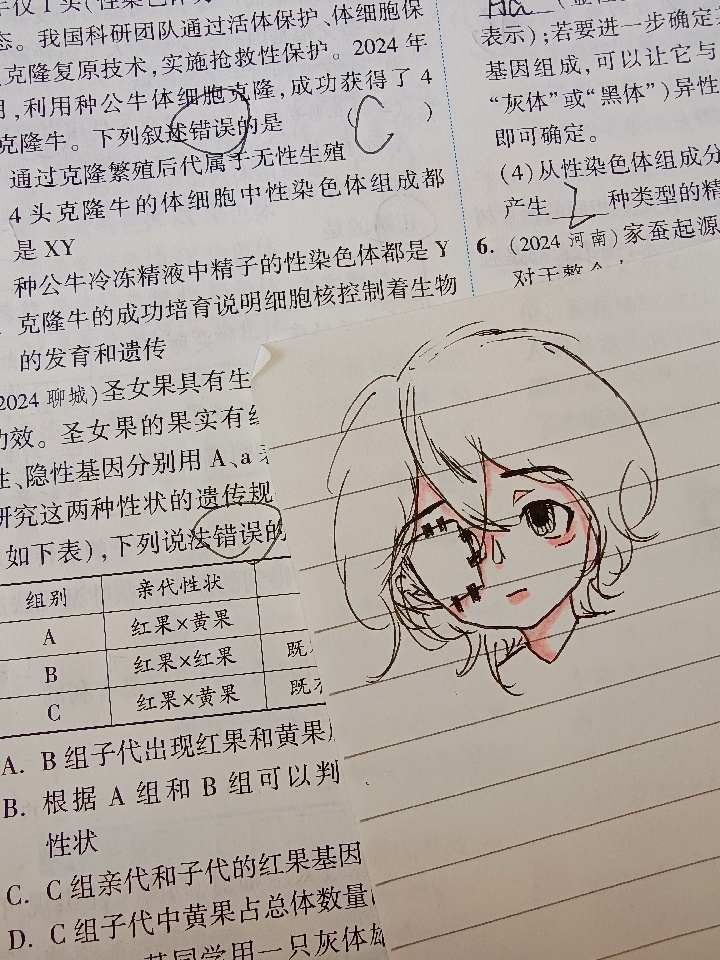 年仅1头(性染色体为
态。我国科研团队通过活体保护、体细胞保
克隆复原技术,实施抢救性保护。2024年
月,利用种公牛体细胞克隆,成功获得了4
克隆牛。下列叙述错误的是 ( C )
通过克隆繁殖后代属于无性生殖
4头克隆牛的体细胞中性染色体组成都
是XY
种公牛冷冻精液中精子的性染色体都是Y
克隆牛的成功培育说明细胞核控制着生物
的发育和遗传
2024 聊城)圣女果具有生
功效。圣女果的果实有红
性、隐性基因分别用A、a
研究这两种性状的遗传规
如下表),下列说法错误的
组别 亲代性状
A 红果×黄果
B 红果×红果 既
C 红果×黄果 既
A. B组子代出现红果和黄果
B. 根据A组和B组可以判
性状
C. C组亲代和子代的红果基因
D. C组子代中黄果占总体数量
某同学用一只灰体雄
表示);若要进一步确定
基因组成,可以让它与
“灰体”或“黑体”)异性
即可确定。
(4)从性染色体组成分
产生 2 种类型的精
6. (2024 河南)家蚕起源